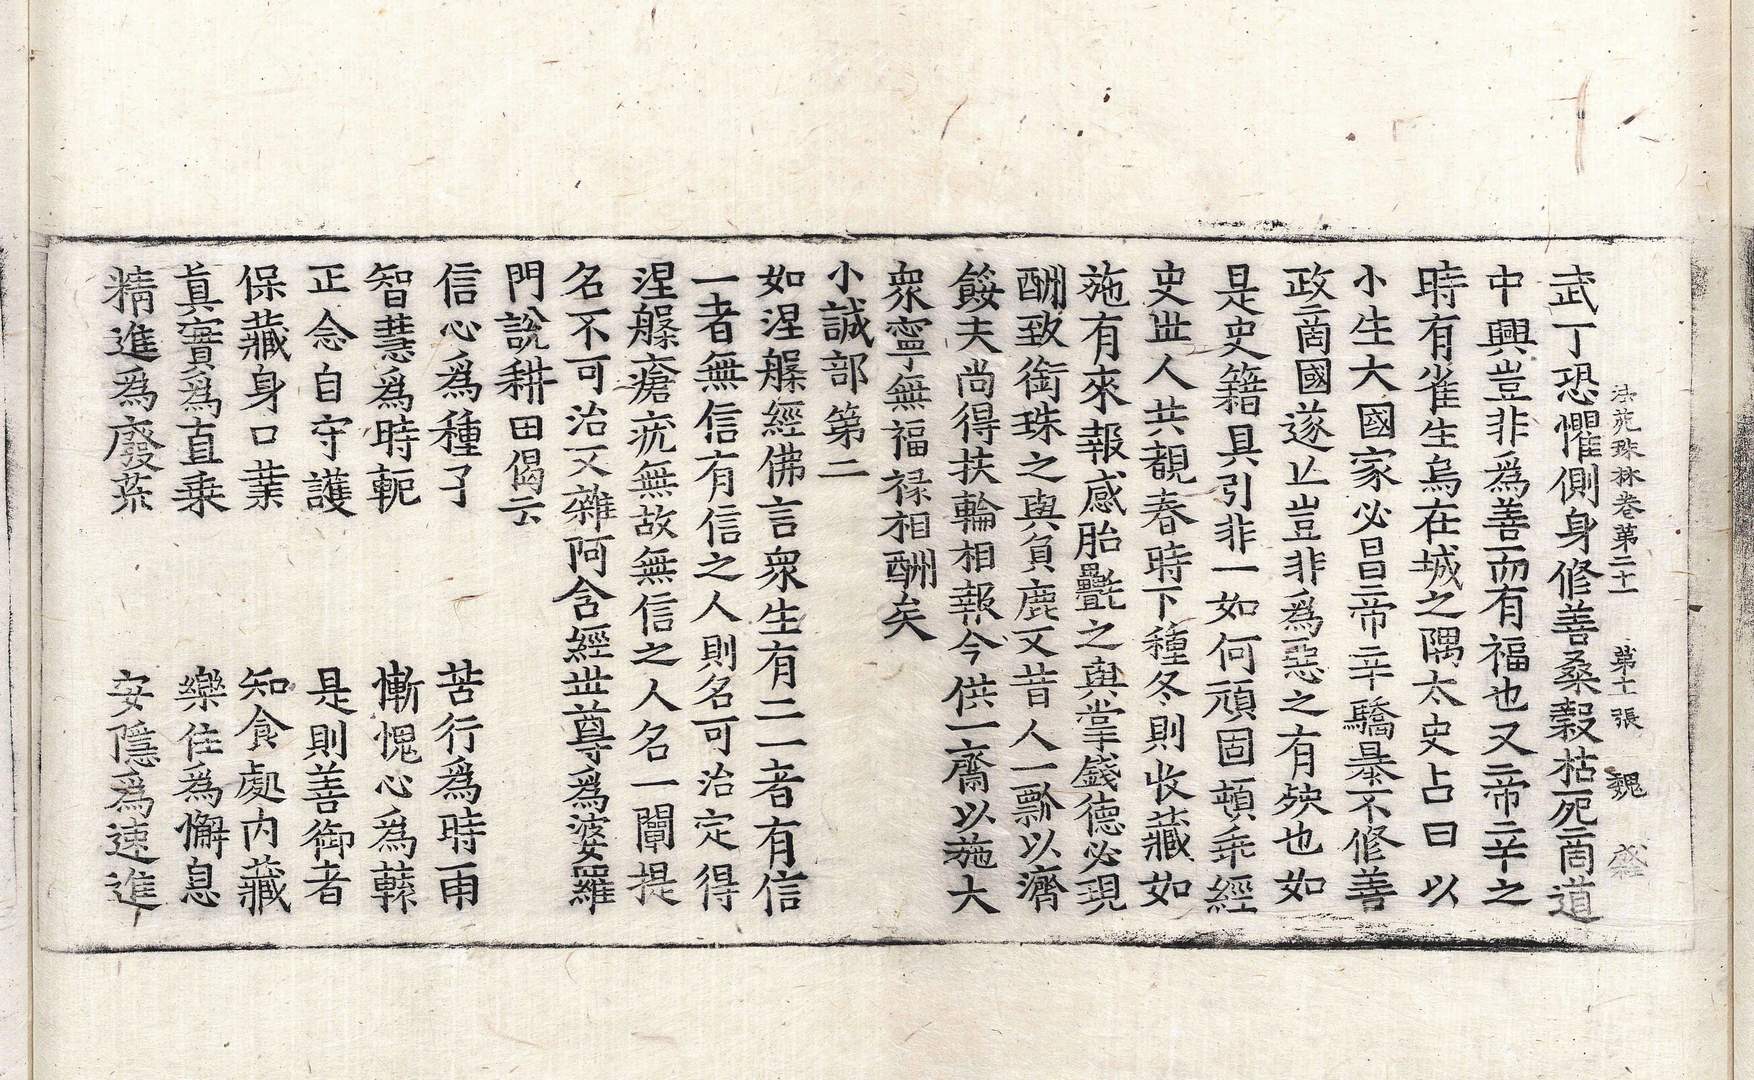 法苑珠林卷第二十一 第十張 魏
武丁恐懼側身修善桑穀枯死啇道
中興豈非爲善而有福也又帝辛之
時有雀生烏在城之隅太史占曰以
小生大國家必昌帝辛驕暴不修善
政啇國遂亾豈非爲惡之有殃也如
是史籍具引非一如何頑固頓乖經
史丗人共覩春時下種冬則收藏如
施有來報感胎㲲之與掌錢德必現
酬致銜珠之與負鹿又昔人一瓢以濟
餒夫尚得扶輪相報今供一齋以施大
衆寧無福禄相酬矣
小誠部第二
如涅槃經佛言衆生有二一者有信
一者無信有信之人則名可治定得
涅槃瘡疣無故無信之人名一闡提
名不可治又雜阿含經丗尊爲婆羅
門說耕田偈云
信心爲種子 苦行爲時雨
智慧爲時軛 慚愧心爲轅
正念自守護 是則善御者
保藏身口業 知食處内藏
眞實爲直乗 樂住爲懈息
精進爲廢荒 安隱爲速進